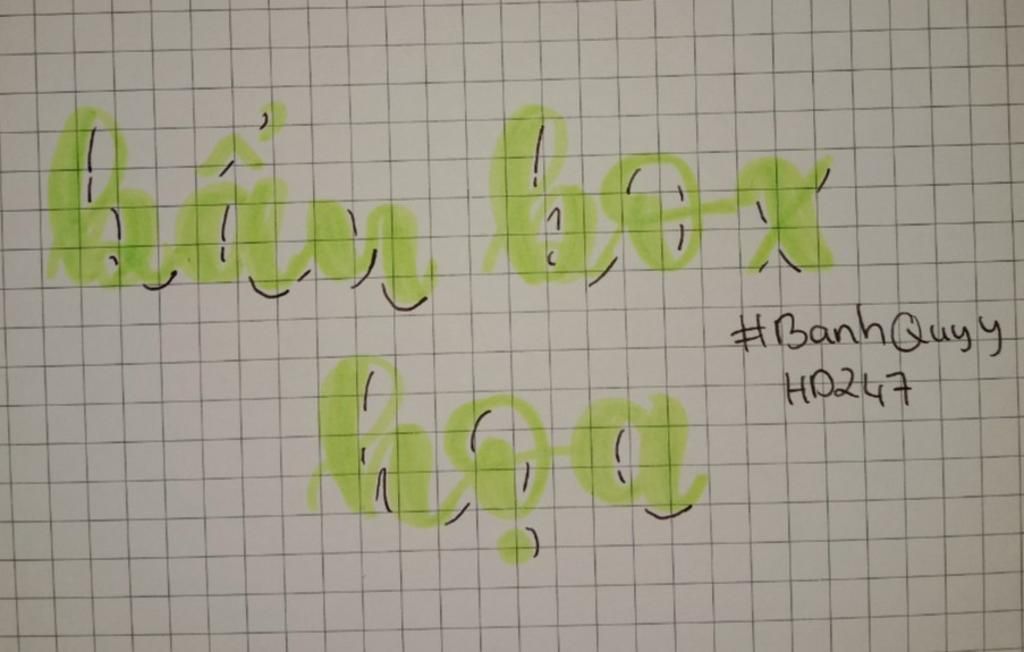 bẩn box
#BanhQuyy
HD247
họa